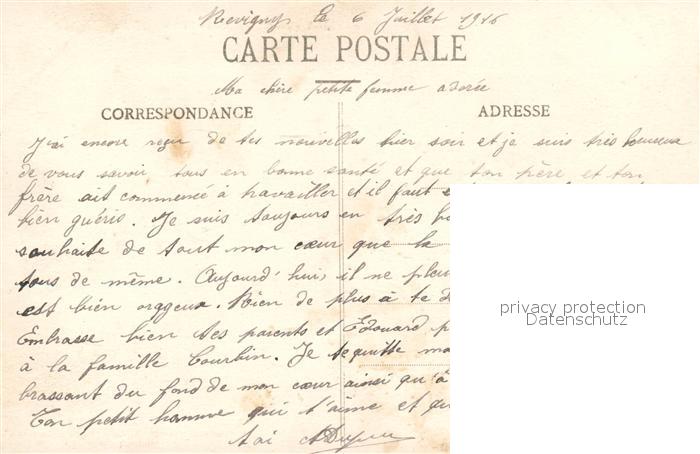 Revigny, le 6 Juillet 1916
CARTE POSTALE
Ma chère petite femme adorée
CORRESPONDANCE ADRESSE
J'ai encore reçu de tes nouvelles hier soir et je suis très heureux
de vous savoir tous en bonne santé et que ton père et ton
frère ait commencé à travailler et il faut
bien guéris. Je suis toujours en très
souhaite de tout mon cœur que la
tous de même. Aujourd'hui, il ne
est bien orageux. Rien de plus à te
Embrasse bien tes parents et Edouard
à la famille Courbin. Je te quitte
brassant du fond de mon cœur ainsi qu'à
Ton petit homme qui t'aime et
toi
privacy protection
Datenschutz